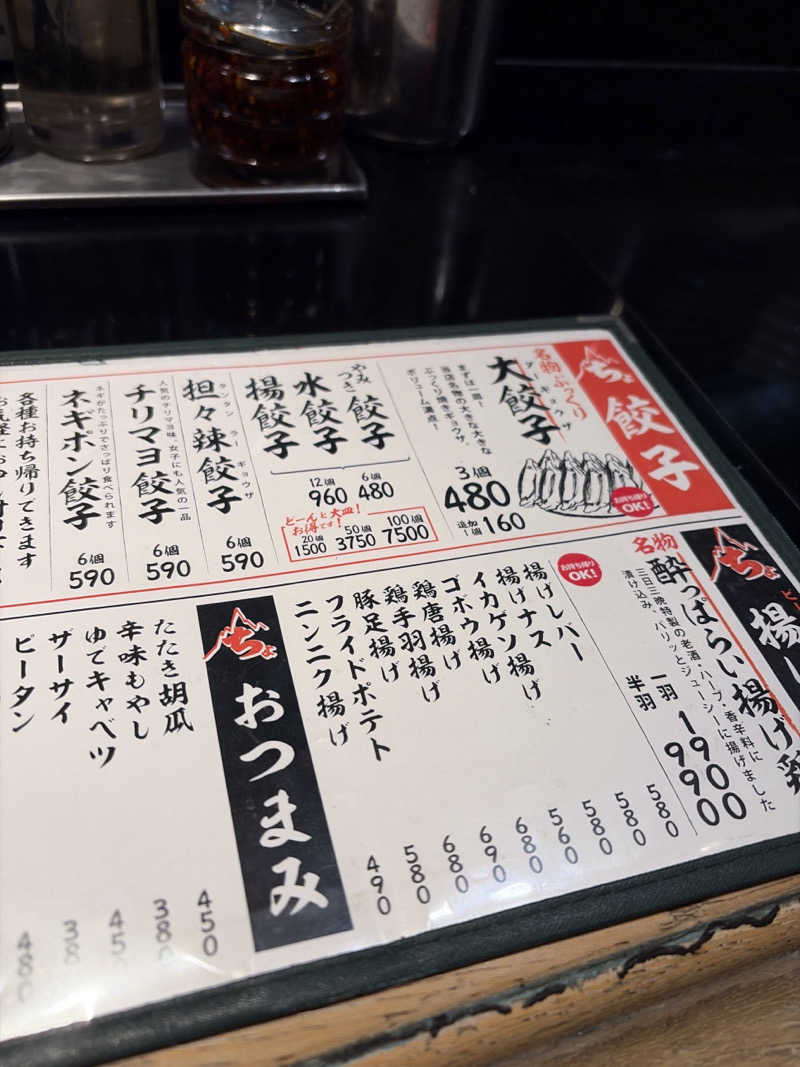 ちょ
餃子
お持ち帰り
OK!
名物ぷっくり
大餃子
ダイギョウザ
まずは一皿!
当店名物の大きな大きな
ぷっくり焼きギョウザ、
ボリューム満点!
3個
480
追加
1個
160
やみつき餃子
水餃子
揚餃子
6個
480
12個
960
どーんと大皿!
お得です!
20個
1500
50個
3750
100個
7500
担々辣餃子
タンタンラーギョウザ
6個
590
チリマヨ餃子
人気のチリマヨ味、女子にも人気の一品
6個
590
ネギポン餃子
ネギがたっぷりでさっぱり食べられます
6個
590
各種お持ち帰りできます
ちょ
揚げ
名物
酔っぱらい揚げ鶏
三日三晩特製の老酒・ハーブ・香辛料に
漬け込み、パリッとジューシーに揚げました
一羽 1990
半羽 990
お持ち帰り
OK!
揚げレバー 580
揚げナス 580
イカゲソ揚げ 580
ゴボウ揚げ 560
鶏唐揚げ 680
鶏手羽揚げ 690
豚足揚げ 680
フライドポテト 580
ニンニク揚げ 490
ちょ
おつまみ
たたき胡瓜 450
辛味もやし 380
ゆでキャベツ 45
ザーサイ 38
ピータン 480